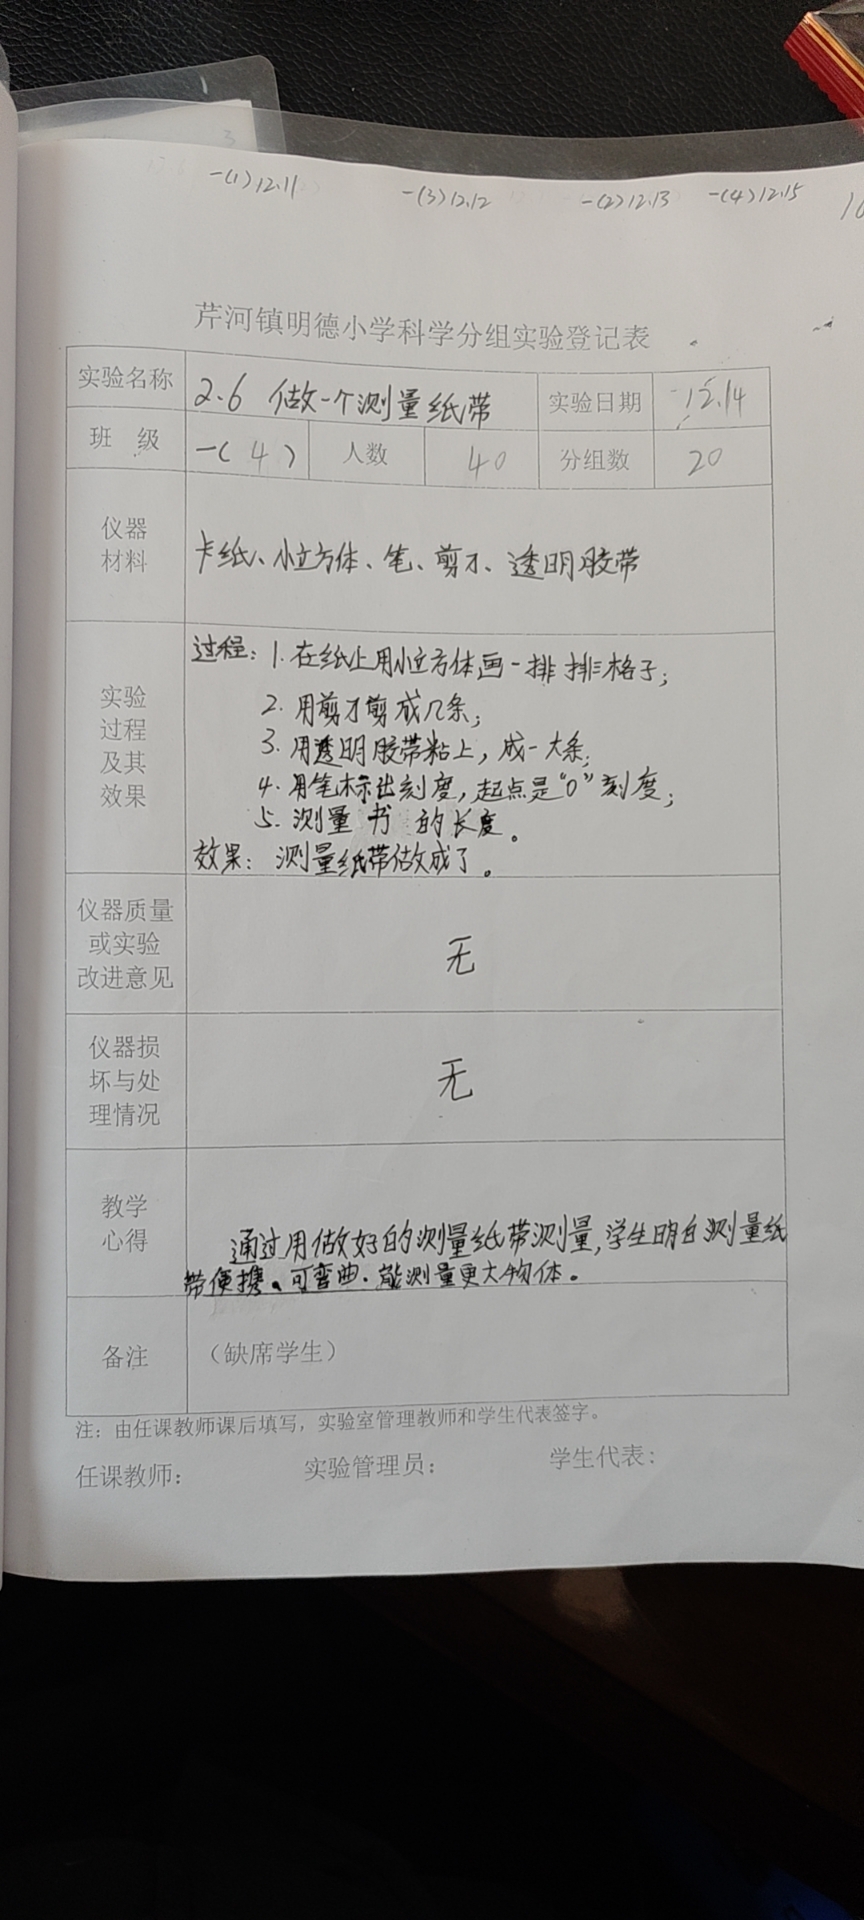 一(1)12.11
一(3)12.12
一(2)12.13
一(4)12.15
芹河镇明德小学科学分组实验登记表
实验名称 2.6 做一个测量纸带 实验日期 12.14
班 级 一(4) 人数 40 分组数 20
仪器
材料
卡纸、小立方体、笔、剪刀、透明胶带
实验
过程
及其
效果
过程：1.在纸上用小立方体画一排排格子；
2.用剪刀剪成几条；
3.用透明胶带粘上，成一大条；
4.用笔标出刻度，起点是“0”刻度；
5.测量书的长度。
效果：测量纸带做成了。
仪器质量
或实验
改进意见
无
仪器损
坏与处
理情况
无
教学
心得
通过用做好的测量纸带测量，学生明白测量纸
带便携、可弯曲.能测量更大物体。
备注 （缺席学生）
注：由任课教师课后填写，实验室管理教师和学生代表签字。
任课教师： 实验管理员： 学生代表：